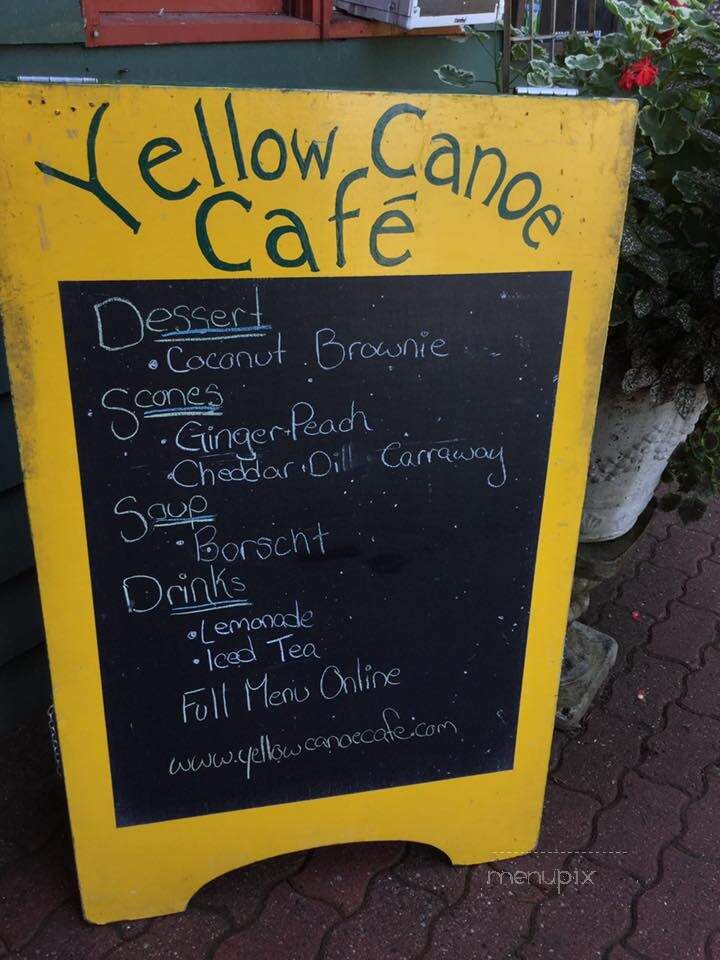 Yellow Canoe
Café
Dessert
• Coconut Brownie
Scones
• Ginger Peach
• Cheddar Dill Carraway
Soup
• Borscht
Drinks
• Lemonade
• Iced Tea
Full Menu Online
www.yellowcanoecafe.com
menupix